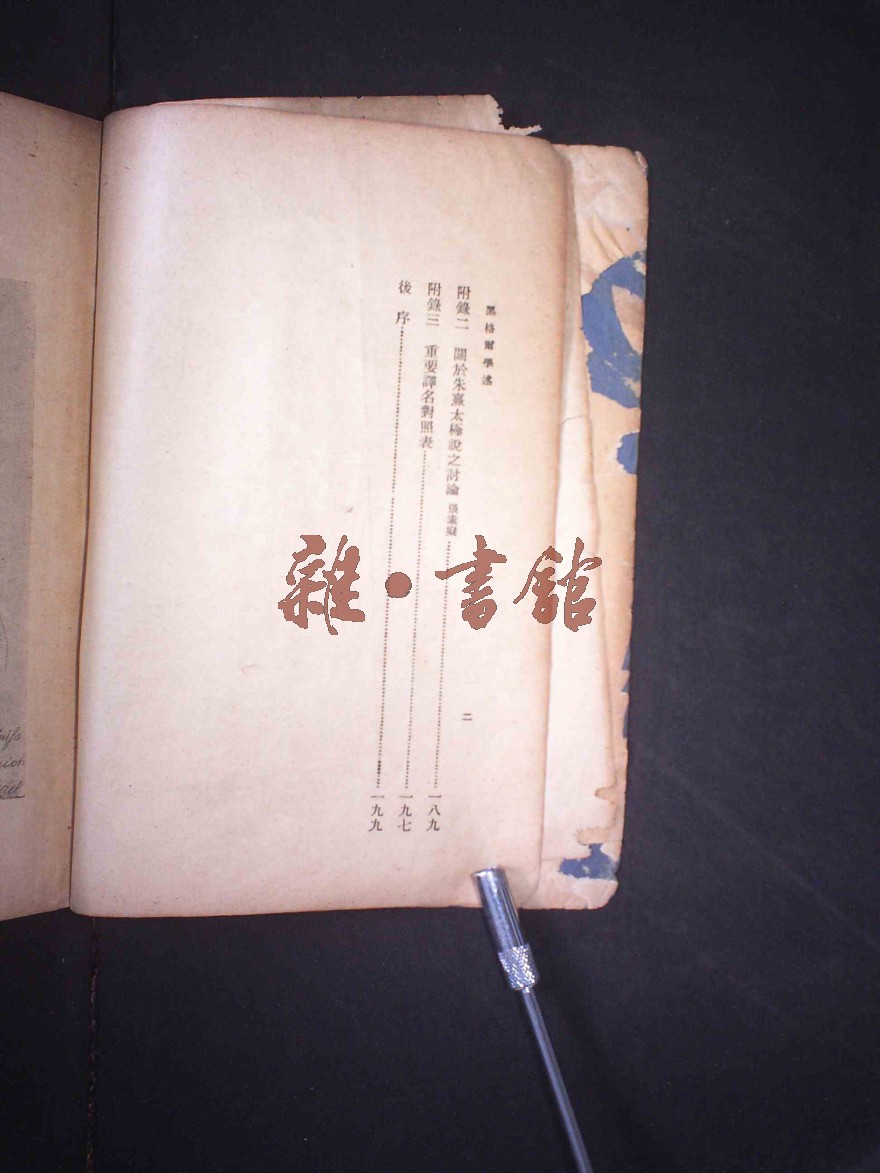 黑格爾學述
附錄二 關於朱熹太極說之討論 張蔭麟 一八九
附錄三 重要譯名對照表 一九七
後序 一九九
二
雜·書館